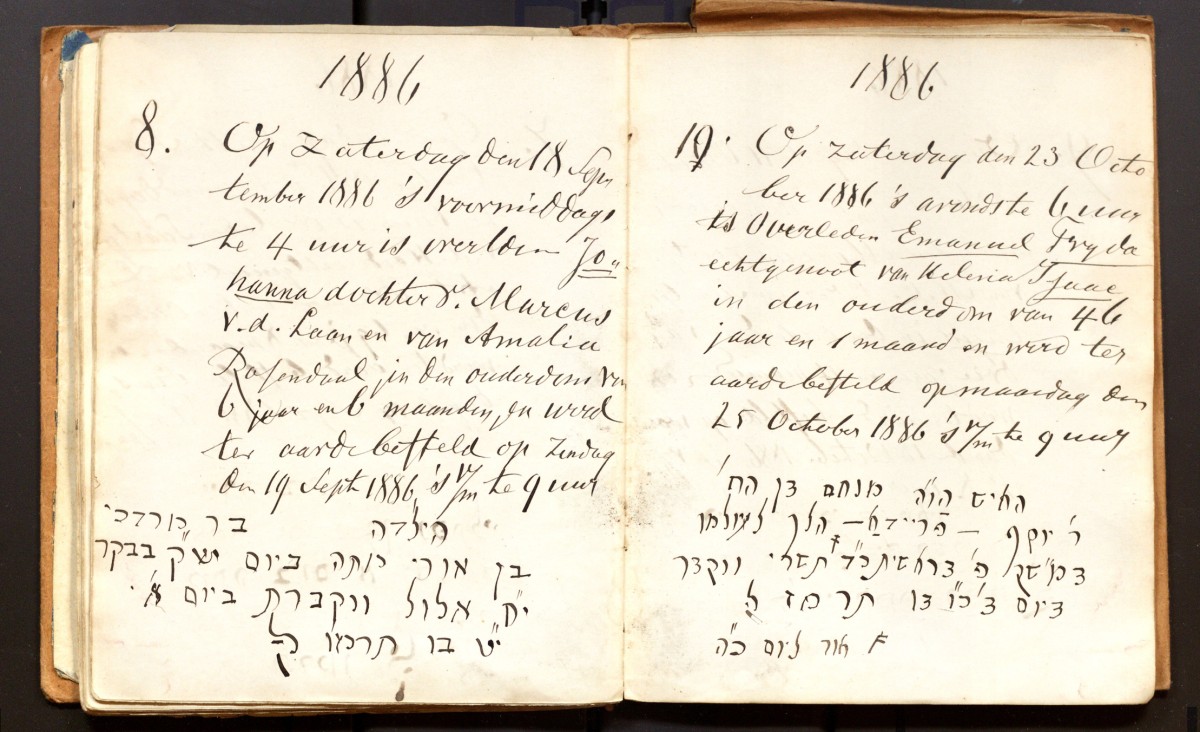 1886
8. Op Zaterdag den 18 Sep„
tember 1886 's voormiddags
te 4 uur is overleden Jo„
hanna dochter v. Marcus
v.d. Laan en van Amalia
Rosendaal, in den ouderdom van
6 jaar en 6 maanden, en werd
ter aarde besteld op Zondag
den 19 Sept 1886 's v/m te 9 uur
הילדה בר מורדכי
בן אורי מתה ביום ש״ק בבקר
י״ח אלול ונקברת ביום א׳
י״ט בו תרמו
1886
10. Op Zaterdag den 23 Octo
ber 1886 's avonds te 6 uur
is Overleden Emanuel Fryda
echtgenoot van Helena Isaac
in den ouderdom van 46
jaar en 1 maand en werd ter
aarde besteld op maandag den
25 October 1886 's v/m te 9 uur
האיש מנחם בן
ר׳ יוסף – פריידא – הלך לעולמו
פ׳ בראשית כ״ד תשרי ונקבר
ביום ב׳ כ״ו בו תרמז ל
אור ליום כ״ה